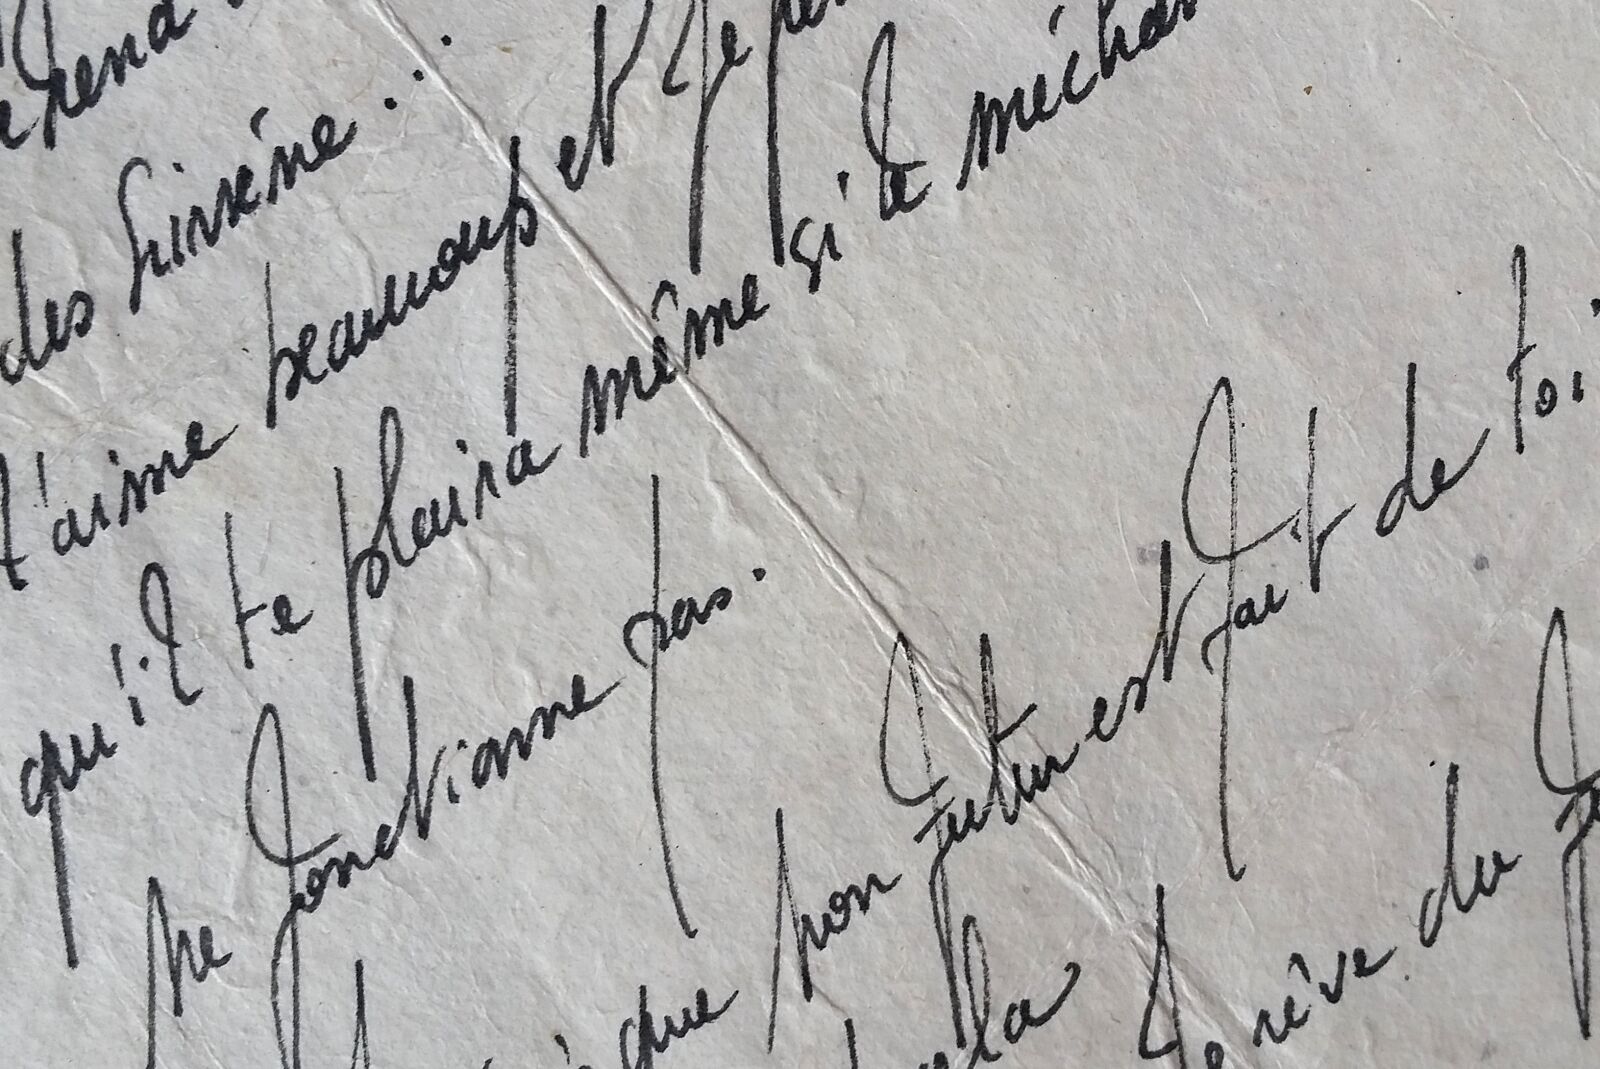 rend
des
t'aime beaucoup et je
qu'il te plaira même si le
ne fonctionne pas.
que ton futur est fait de toi
la
rêve du